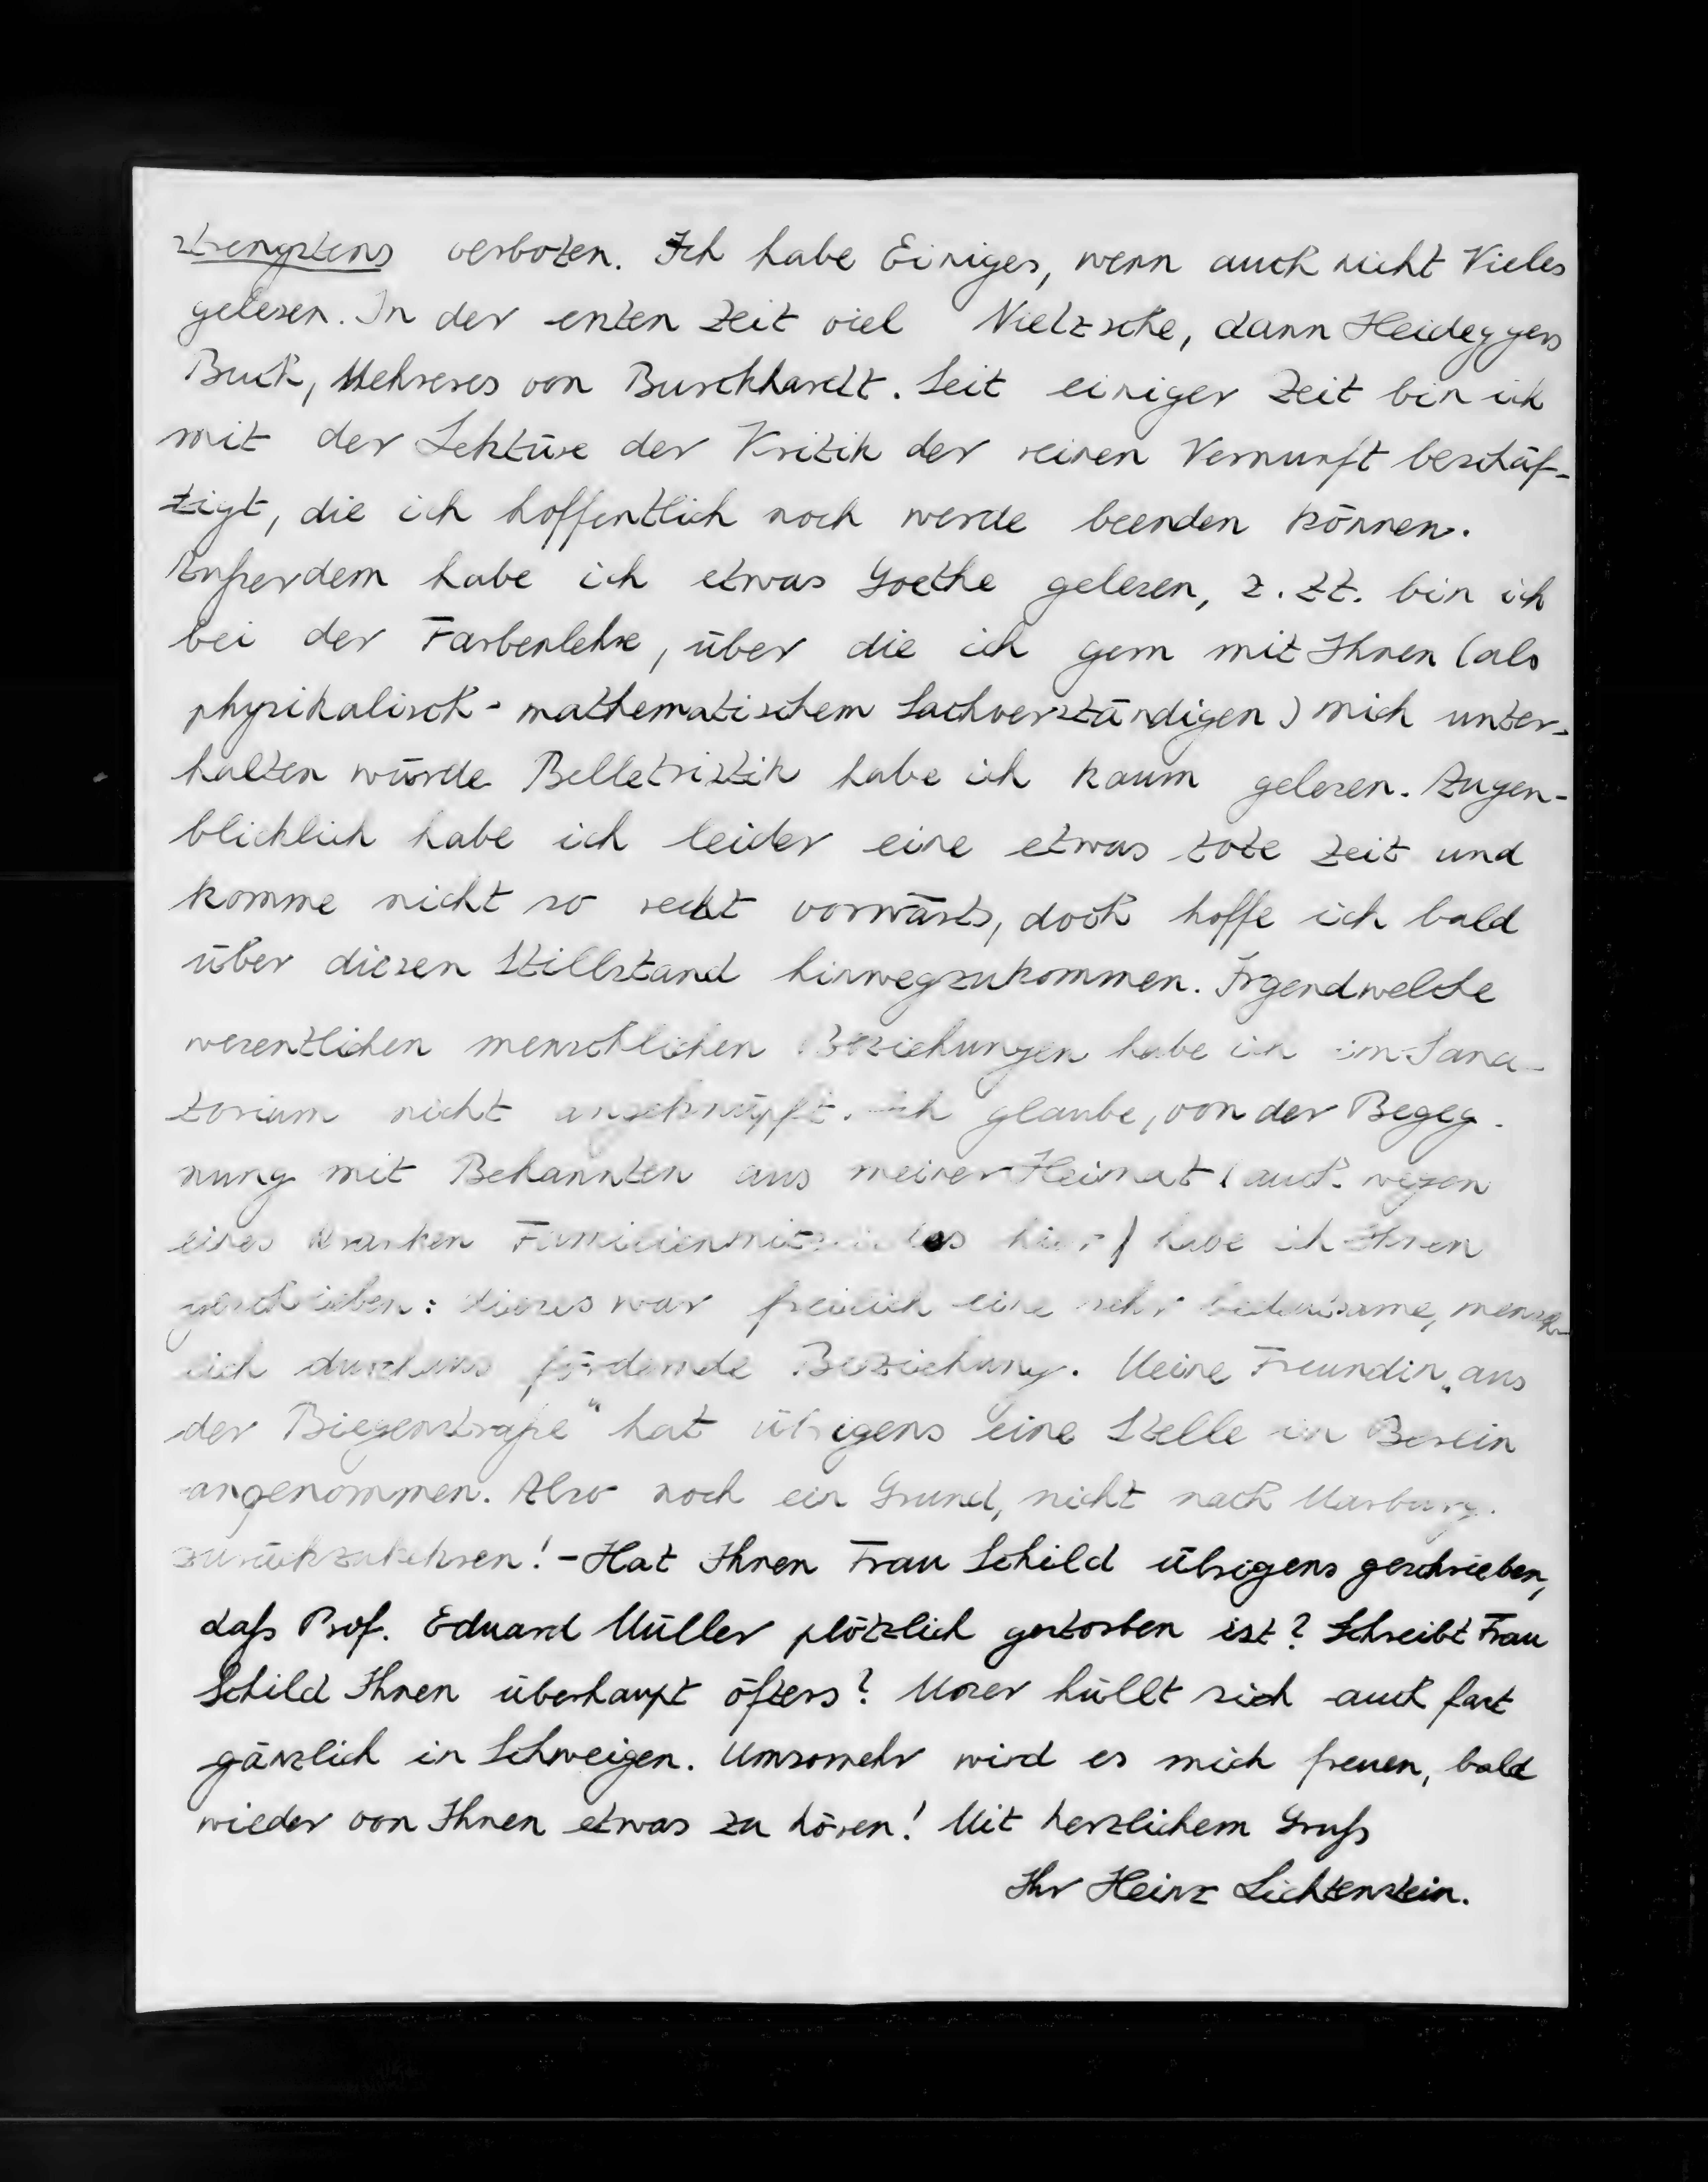 strengstens verboten. Ich habe Einiges, wenn auch nicht Vieles
gelesen. In der ersten Zeit viel Nietzsche, dann Heideggers
Buch, Mehreres von Burckhardt. Seit einiger Zeit bin ich
mit der Lektüre der Kritik der reinen Vernunft beschäf-
tigt, die ich hoffentlich noch werde beenden können.
Außerdem habe ich etwas Goethe gelesen, z. Zt. bin ich
bei der Farbenlehre, über die ich gern mit Ihnen (als
physikalisch-mathematischem Sachverständigen) mich unter-
halten würde. Belletristik habe ich kaum gelesen. Augen-
blicklich habe ich leider eine etwas tote Zeit und
komme nicht so recht vorwärts, doch hoffe ich bald
über diesen Stillstand hinwegzukommen. Irgendwelche
wesentlichen menschlichen Beziehungen habe ich im Sana-
torium nicht angeknüpft. Ich glaube, von der Begeg-
nung mit Bekannten aus meiner Heimat (auch wegen
eines kranken Familienmitgliedes hier) habe ich Ihnen
geschrieben: dieses war freilich eine sehr bedeutsame, mensch-
lich durchaus fördernde Beziehung. Meine Freundin „aus
der Biegenstraße" hat übrigens eine Stelle in Berlin
angenommen. Also noch ein Grund, nicht nach Marburg
zurückzukehren! - Hat Ihnen Frau Schild übrigens geschrieben,
daß Prof. Eduard Müller plötzlich gestorben ist? Schreibt Frau
Schild Ihnen überhaupt öfters? Moser hüllt sich auch fast
gänzlich in Schweigen. Umsomehr wird es mich freuen, bald
wieder von Ihnen etwas zu hören! Mit herzlichem Gruß
Ihr Heinz Lichtenstein.